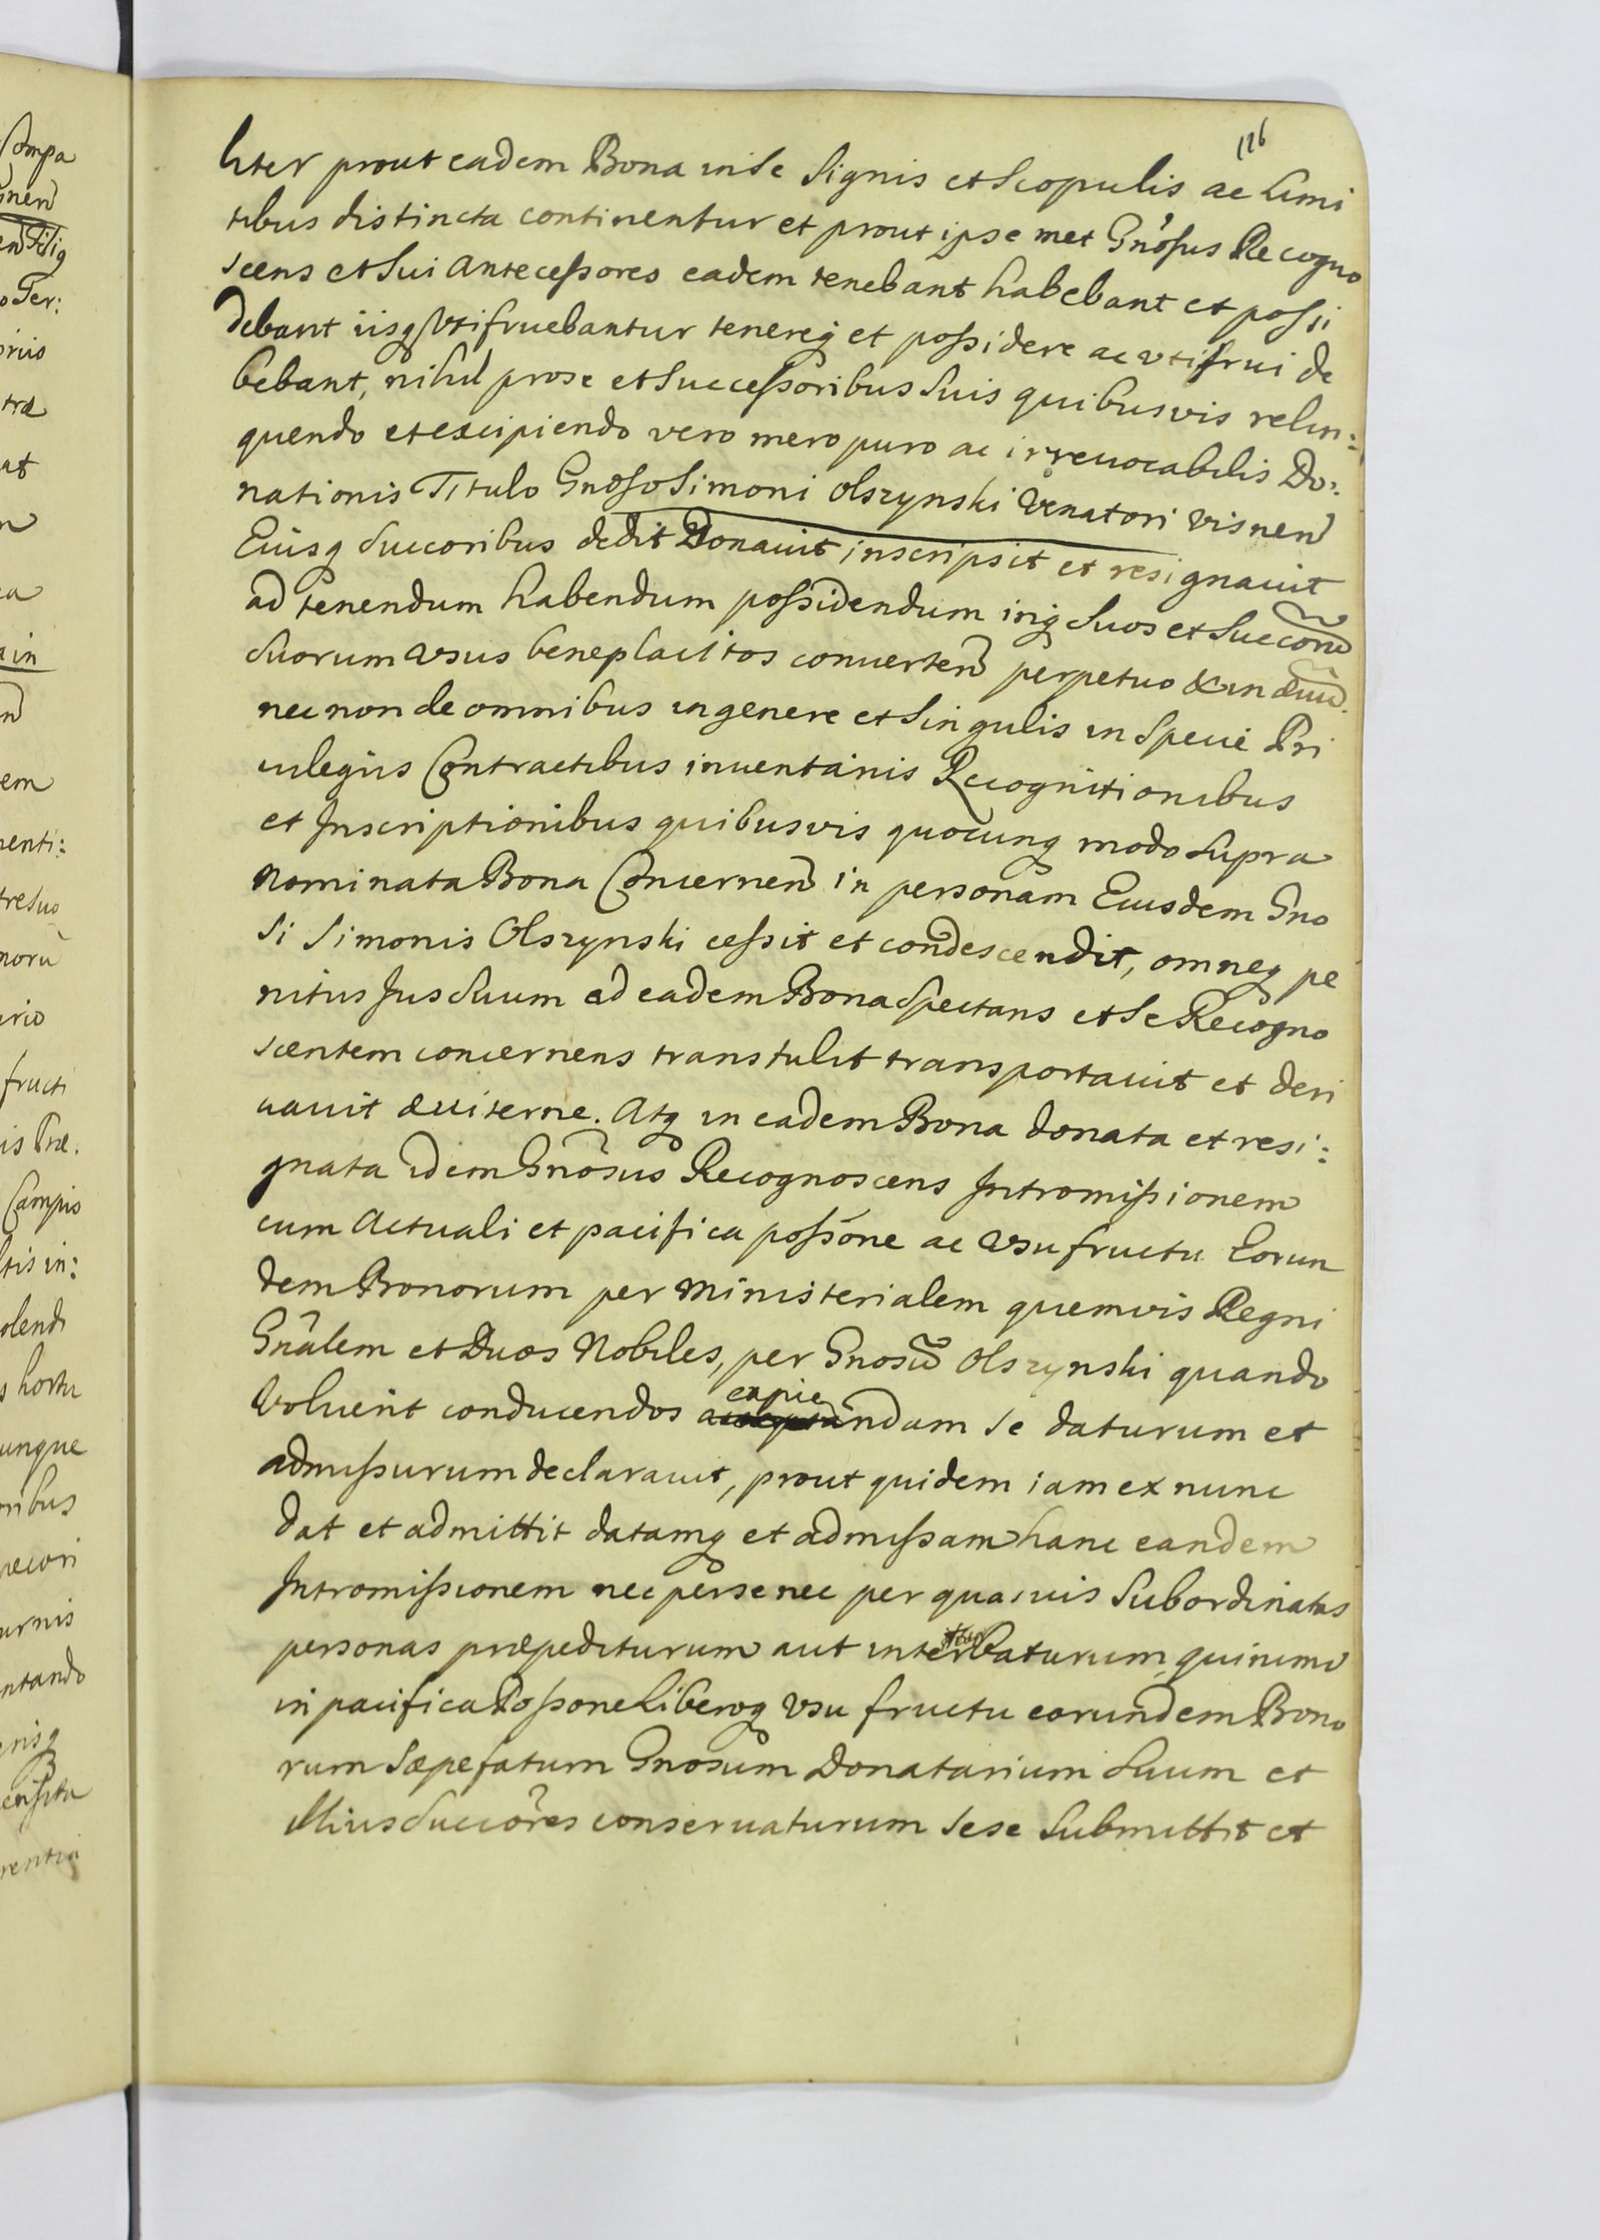 126
liter prout eadem Bona in se Signis et Scopulis ac Limi
tibus distincta continentur et prout ipse met Gnosus Recogno
scens et Sui Antecessores eadem tenebant habebant et possi
debant iisq utifruebantur tenereq et possidere ac utifrui de
bebant, nihil pro se et Successoribus Suis quibusvis relin:
quendo et excipiendo vero mero puro ac irrevocabilis Do:
nationis Titulo Gnoso Simoni Olszynski Venatori Visnen
Eiusq Succoribus dedit Donauit inscripsit et resignauit
ad tenendum habendum possidendum inq Suos et Succoru
Suorum Usus beneplacitos conuerten perpetuo & in æuu.
nec non de omnibus in genere et Singulis in Specie Pri
uilegiis Contractibus inuentariis Recognitionibus
et Inscriptionibus quibusvis quocunq modo Supra
Nominata Bona Concernen in personam Eiusdem Gno
si Simonis Olszynski cessit et condescendit, omneq pe
nitus Jus Suum ad eadem Bona Spectans et Se Recogno
scentem concernens transtulit transportauit et deri
uauit æuiterne. Atq in eadem Bona donata et resi:
gnata idem Gnosus Recognoscens Intromissionem
cum Actuali et pacifica possone ac Usufructu Eorun
dem Bonorum per Ministerialem quemvis Regni
Gnalem et Duos Nobiles, per Gnosu Olszynski quando
Voluerit conducendos capiendam se daturum et
admissurum declarauit, prout quidem iam ex nunc
dat et admittit datamq et admissam hanc eandem
Intromissionem nec per se nec per quasuis Subordinatas
personas præpediturum aut inter turbaturum, quinimo
in pacifica Possone Liberoq Usu fructu eorundem Bono
rum Sæpefatum Gnosum Donatarium Suum et
illius Succores conseruaturum Sese Submittit et